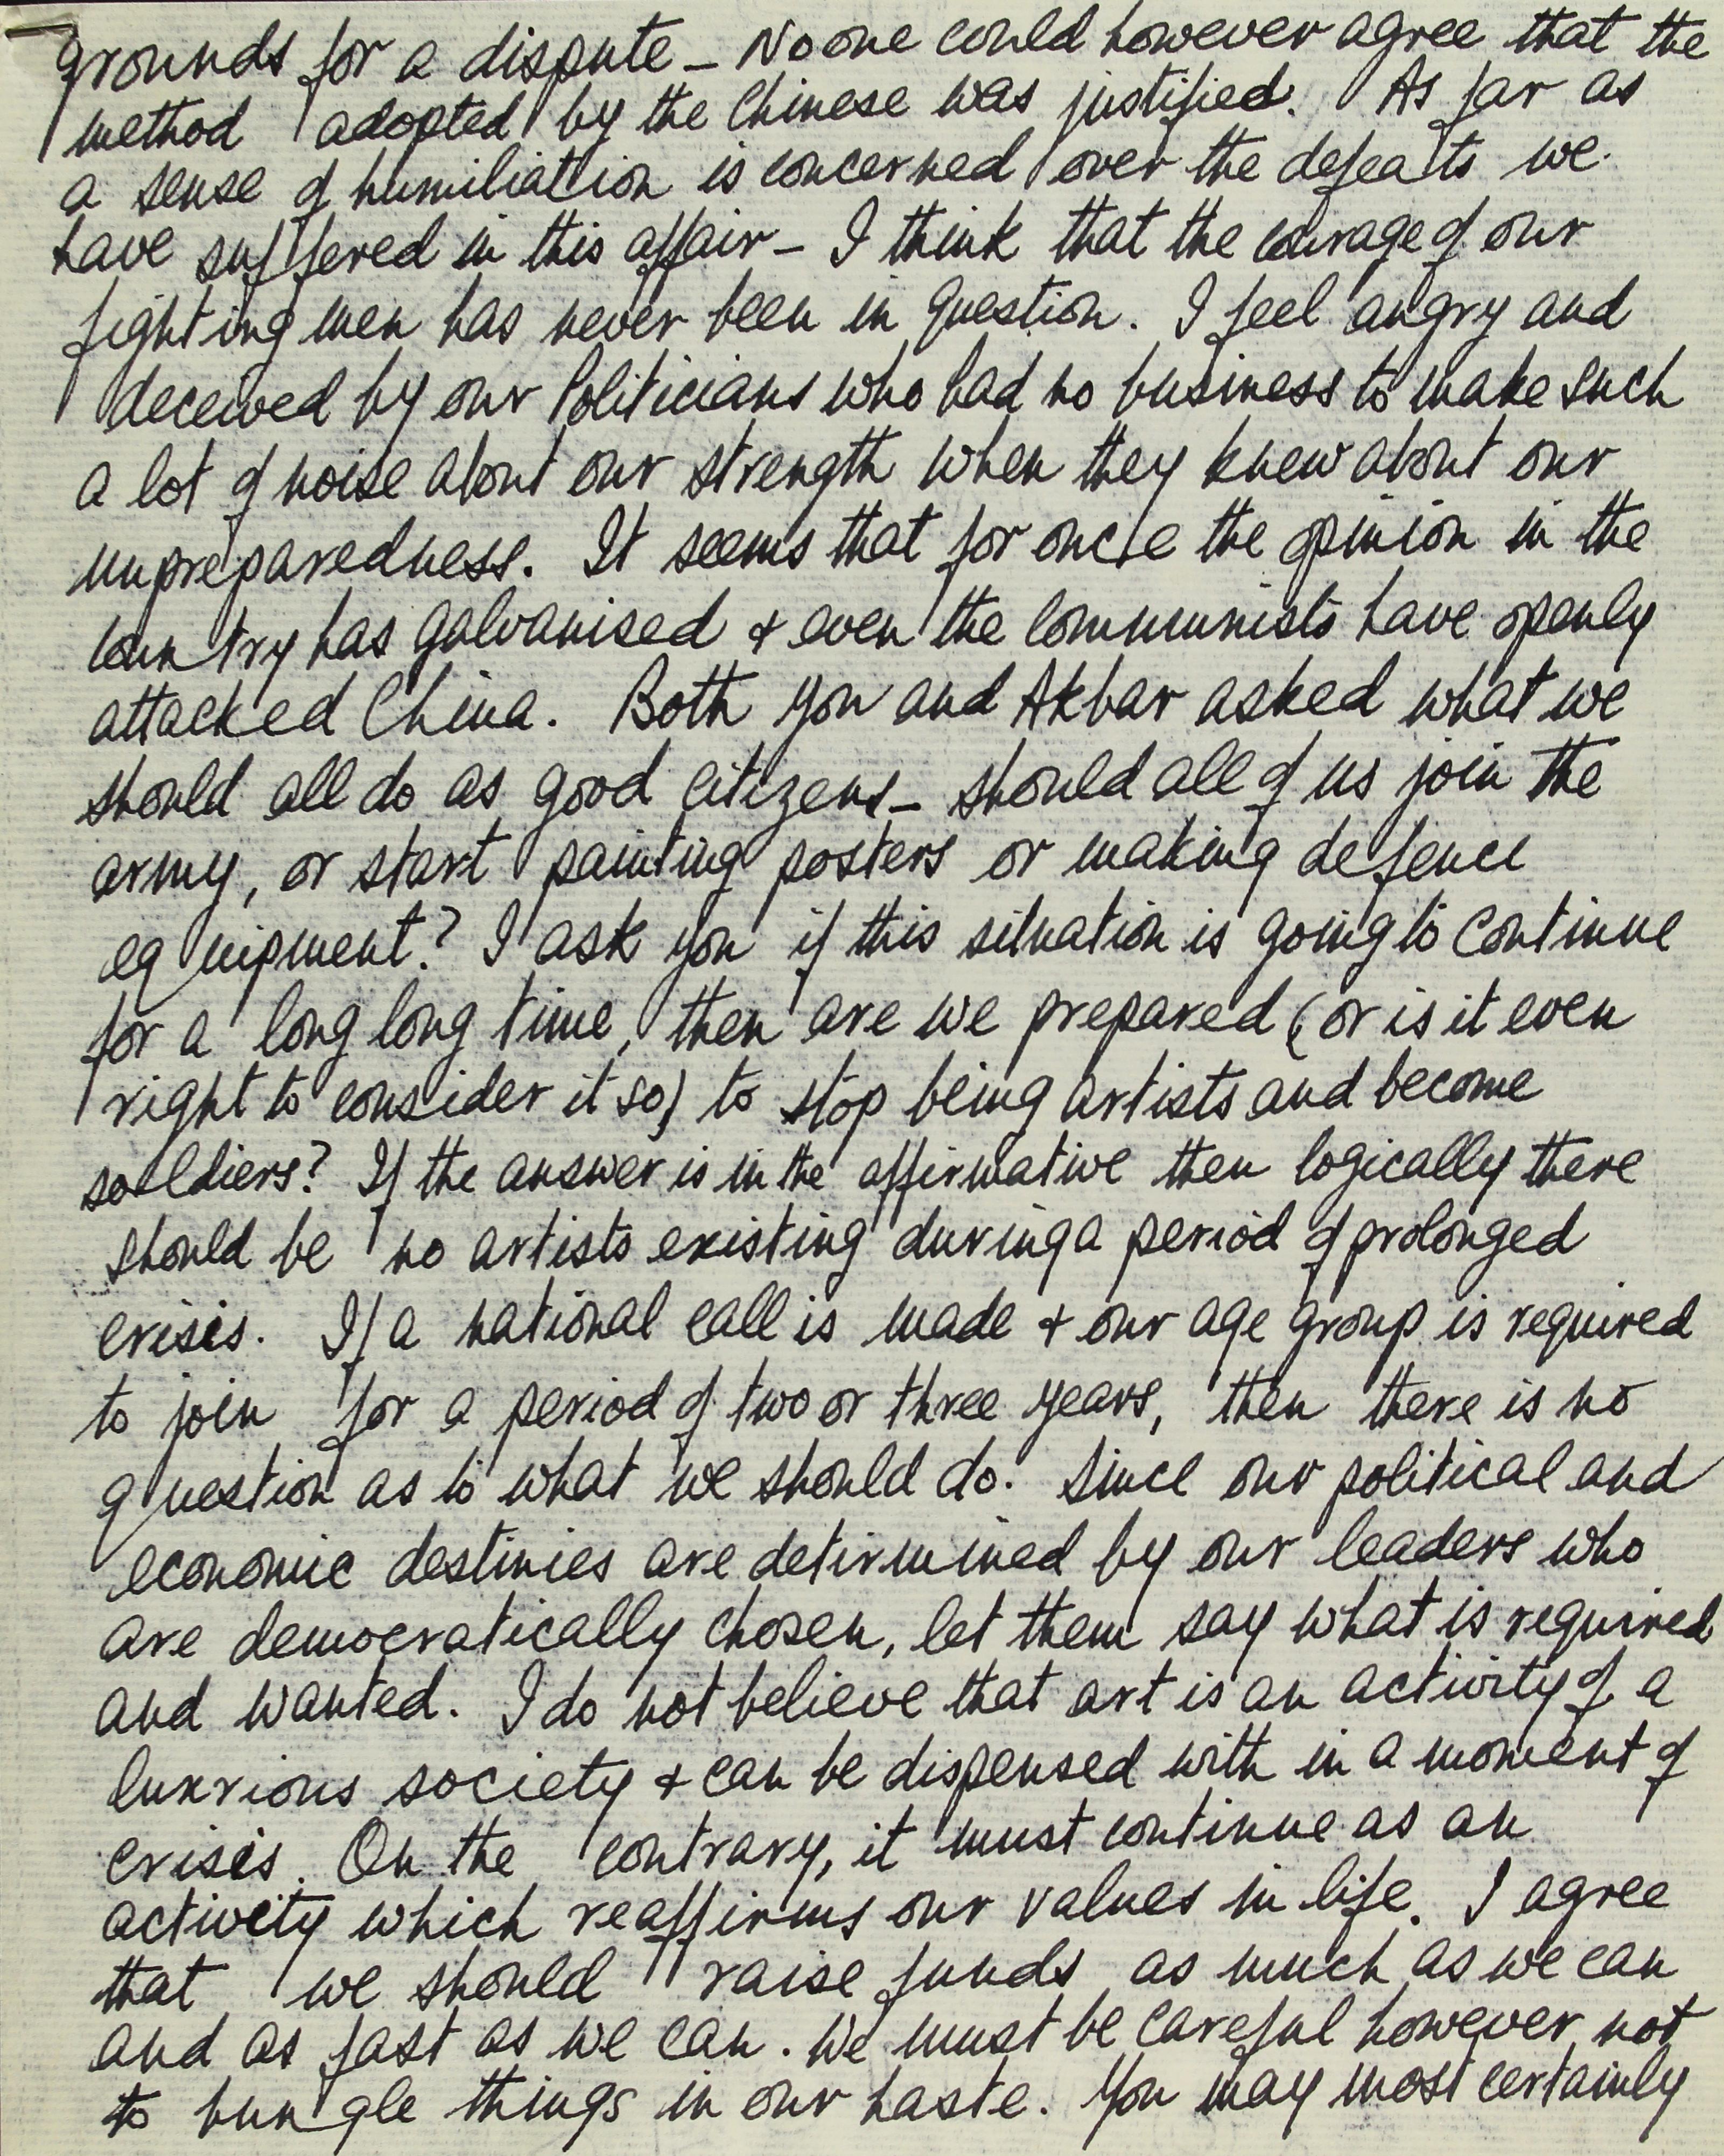 grounds for a dispute – No one could however agree that the
method adopted by the Chinese was justified. As far as
a sense of humiliation is concerned over the defeats we
have suffered in this affair – I think that the courage of our
fighting men has never been in question. I feel angry and
deceived by our Politicians who had no business to make such
a lot of noise about our strength when they knew about our
unpreparedness. It seems that for once the opinion in the
country has galvanised & even the Communists have openly
attacked China. Both you and Akbar asked what we
should all do as good citizens – should all of us join the
army, or start painting posters or making defence
equipment? I ask you if this situation is going to continue
for a long long time, then are we prepared (or is it even
right to consider it so) to stop being artists and become
soldiers? If the answer is in the affirmative then logically there
should be no artists existing during a period of prolonged
crisis. If a national call is made & our age group is required
to join for a period of two or three years, then there is no
question as to what we should do. Since our political and
economic destinies are detirmined by our leaders who
are democratically chosen, let them say what is required
and wanted. I do not believe that art is an activity of a
luxrious society & can be dispensed with in a moment of
crisis. On the contrary, it must continue as an
activity which reaffirms our values in life. I agree
that we should raise funds as much as we can
and as fast as we can. We must be careful however not
to bungle things in our haste. You may most certainly